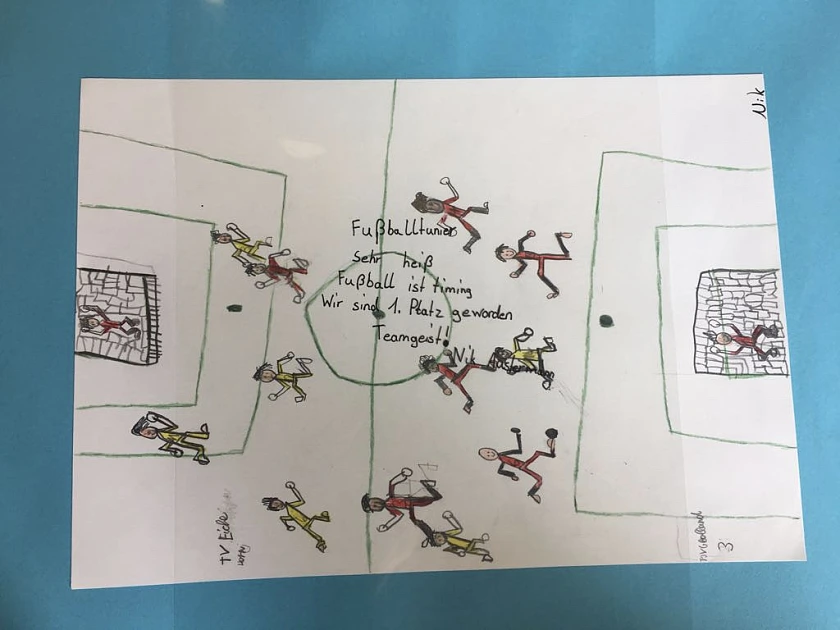 Nik
Fußballtunier
Sehr heiß
Fußball ist timing
Wir sind 1. Platz geworden
Teamgeist!
Nik
TV Eiche
3